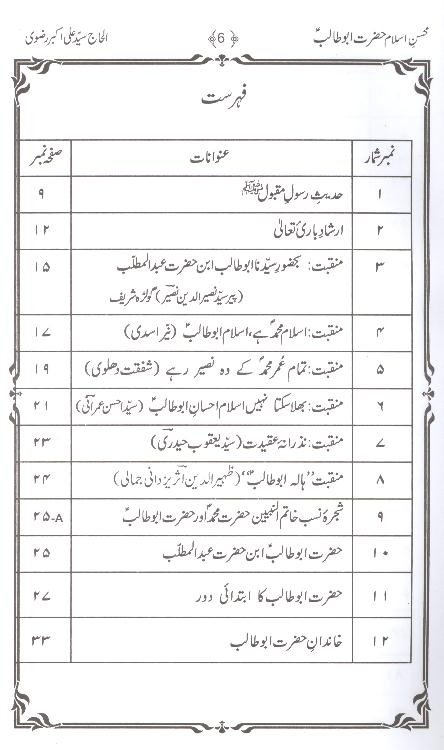 محسنِ اسلام حضرت ابوطالبؑ ﴿6﴾ الحاج سیّد علی اکبر رضوی
فہرست
نمبر شمار عنوانات صفحہ نمبر
۱ حدیثِ رسولِ مقبول ﷺ ۹
۲ ارشادِ باریٔ تعالیٰ ۱۲
۳ منقبت: بحضور سیّدنا ابوطالب ابن حضرت عبدالمطلّب ۱۵
(پیر سیّد نصیرالدین نصیرؔ) گولڑہ شریف
۴ منقبت: اسلام محمدؐ ہے، اسلام ابوطالبؑ (نیّر اسدی) ۱۷
۵ منقبت: تمام عُمر محمدؐ کے وہ نصیر رہے (شفقت دھلوی) ۱۹
۶ منقبت: بھلا سکتا نہیں اسلام احسانِ ابوطالبؑ (سیّد احسن عمرانی) ۲۱
۷ منقبت: نذرانۂ عقیدت (سیّد یعقوب حیدری) ۲۳
۸ منقبت ”ہالہ ابوطالبؑ“ (ظہیرالدین اثرؔ یزدانی جمالی) ۲۴
۹ شجرۂ نسب خاتم النبیین حضرت محمدؐ اور حضرت ابوطالبؑ ۲۵-A
۱۰ حضرت ابوطالبؑ ابن حضرت عبدالمطلّب ۲۵
۱۱ حضرت ابوطالب کا ابتدائی دور ۲۷
۱۲ خاندانِ حضرت ابوطالب ۳۳